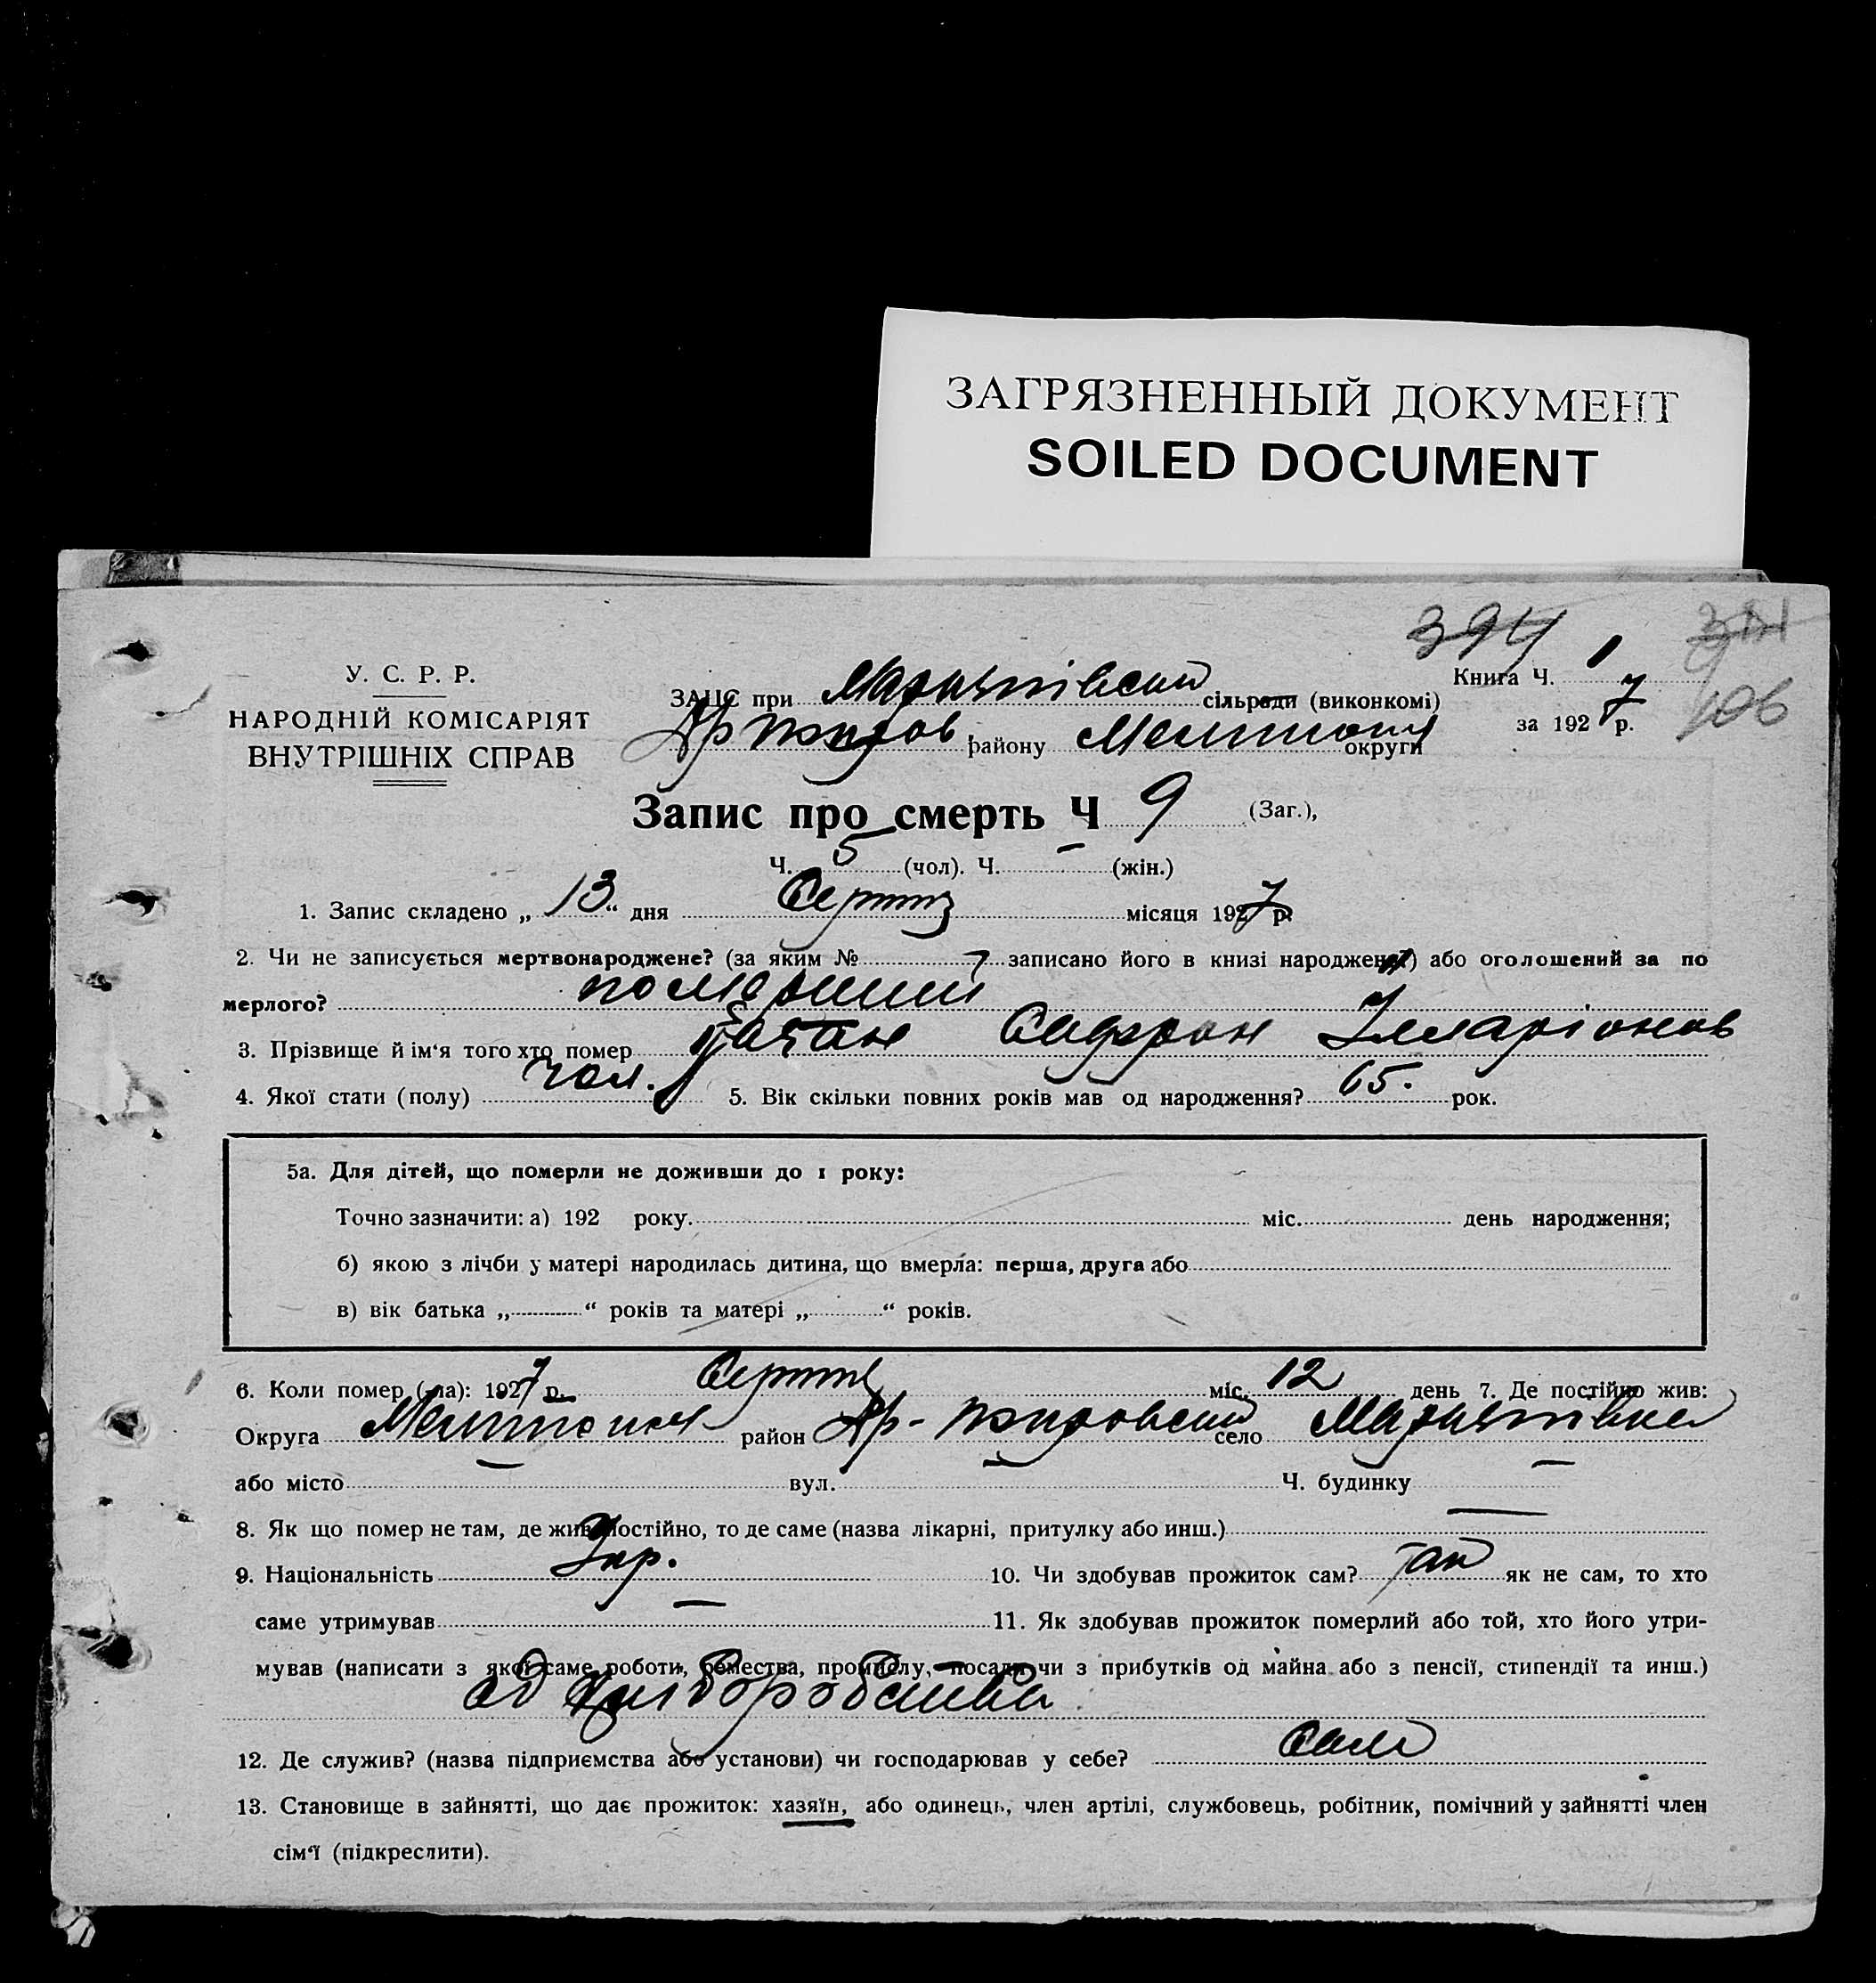 ЗАГРЯЗНЕННЫЙ ДОКУМЕНТ
SOILED DOCUMENT
394
У. С. Р. Р.
НАРОДНІЙ КОМІСАРІЯТ
ВНУТРІШНІХ СПРАВ
Книга Ч. 1
за 1927 р.
106
ЗАГС при сільради (виконкомі)
району округи
Запис про смерть Ч 9 (Заг.),
Ч. 5 (чол). Ч. – (жін.)
1. Запис складено „ 13 “ дня Серпня місяця 1927 р.
2. Чи не записується мертвонароджене? (за яким № записано його в книзі народжених) або оголошений за по
мерлого? померший
3. Прізвище й ім‘я того хто помер Сафрон Іларіонов
4. Якої стати (полу) чол. 5. Вік скільки повних років мав од народження? 65. рок.
5а. Для дітей, що померли не доживши до 1 року:
Точно зазначити: а) 192 року. міс. день народження;
б) якою з лічби у матері народилась дитина, що вмерла: перша, друга або
в) вік батька „ “ років та матері „ “ років.
6. Коли помер (ла): 1927 р. Серпня міс. 12 день 7. Де постійно жив:
Округа район село
або місто – вул. – Ч. будинку –
8. Як що помер не там, де жив постійно, то де саме (назва лікарні, притулку або инш.) —
9. Національність Укр. 10. Чи здобував прожиток сам? так як не сам, то хто
саме утримував – 11. Як здобував прожиток померлий або той, хто його утри-
мував (написати з якої саме роботи, ремества, промислу, посади чи з прибутків од майна або з пенсії, стипендії та инш.)
од хліборобства
12. Де служив? (назва підприємства або установи) чи господарював у себе? сам
13. Становище в зайнятті, що дає прожиток: хазяїн, або одинець, член артілі, службовець, робітник, помічний у зайнятті член
сім‘ї (підкреслити).